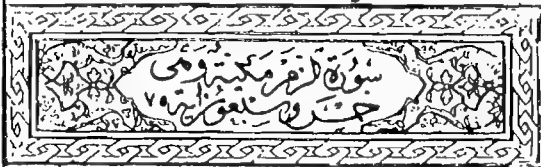 سورة الزمر مكية وهي
خمس وسبعون آية ٧٥